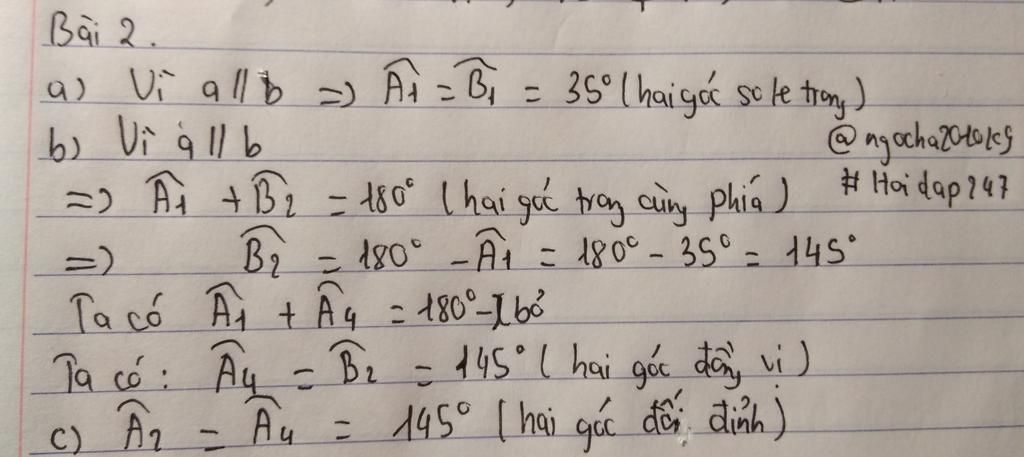 Bài 2.
a) Vì a // b => Â1 = B̂1 = 35° (hai góc so le trong)
b) Vì a // b
@ngocha2010kg
=> Â1 + B̂2 = 180° (hai góc trong cùng phía)
# Hoidap247
=> B̂2 = 180° - Â1 = 180° - 35° = 145°
Ta có Â1 + Â4 = 180° - bỏ
Ta có: Â4 = B̂2 = 145° (hai góc đồng vị)
c) Â2 = Â4 = 145° (hai góc đối đỉnh)